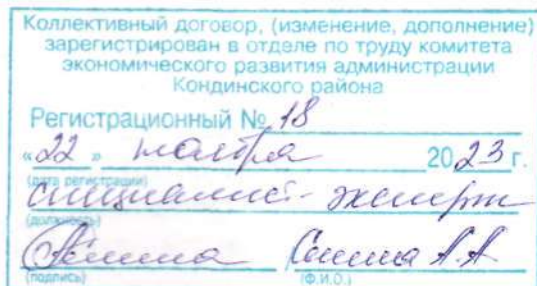 Коллективный договор, (изменение, дополнение)
зарегистрирован в отделе по труду комитета
экономического развития администрации
Кондинского района
Регистрационный № 18
«22» ноября 2023 г.
(дата регистрации)
специалист-эксперт
(должность)
А.А
(подпись) (Ф.И.О.)